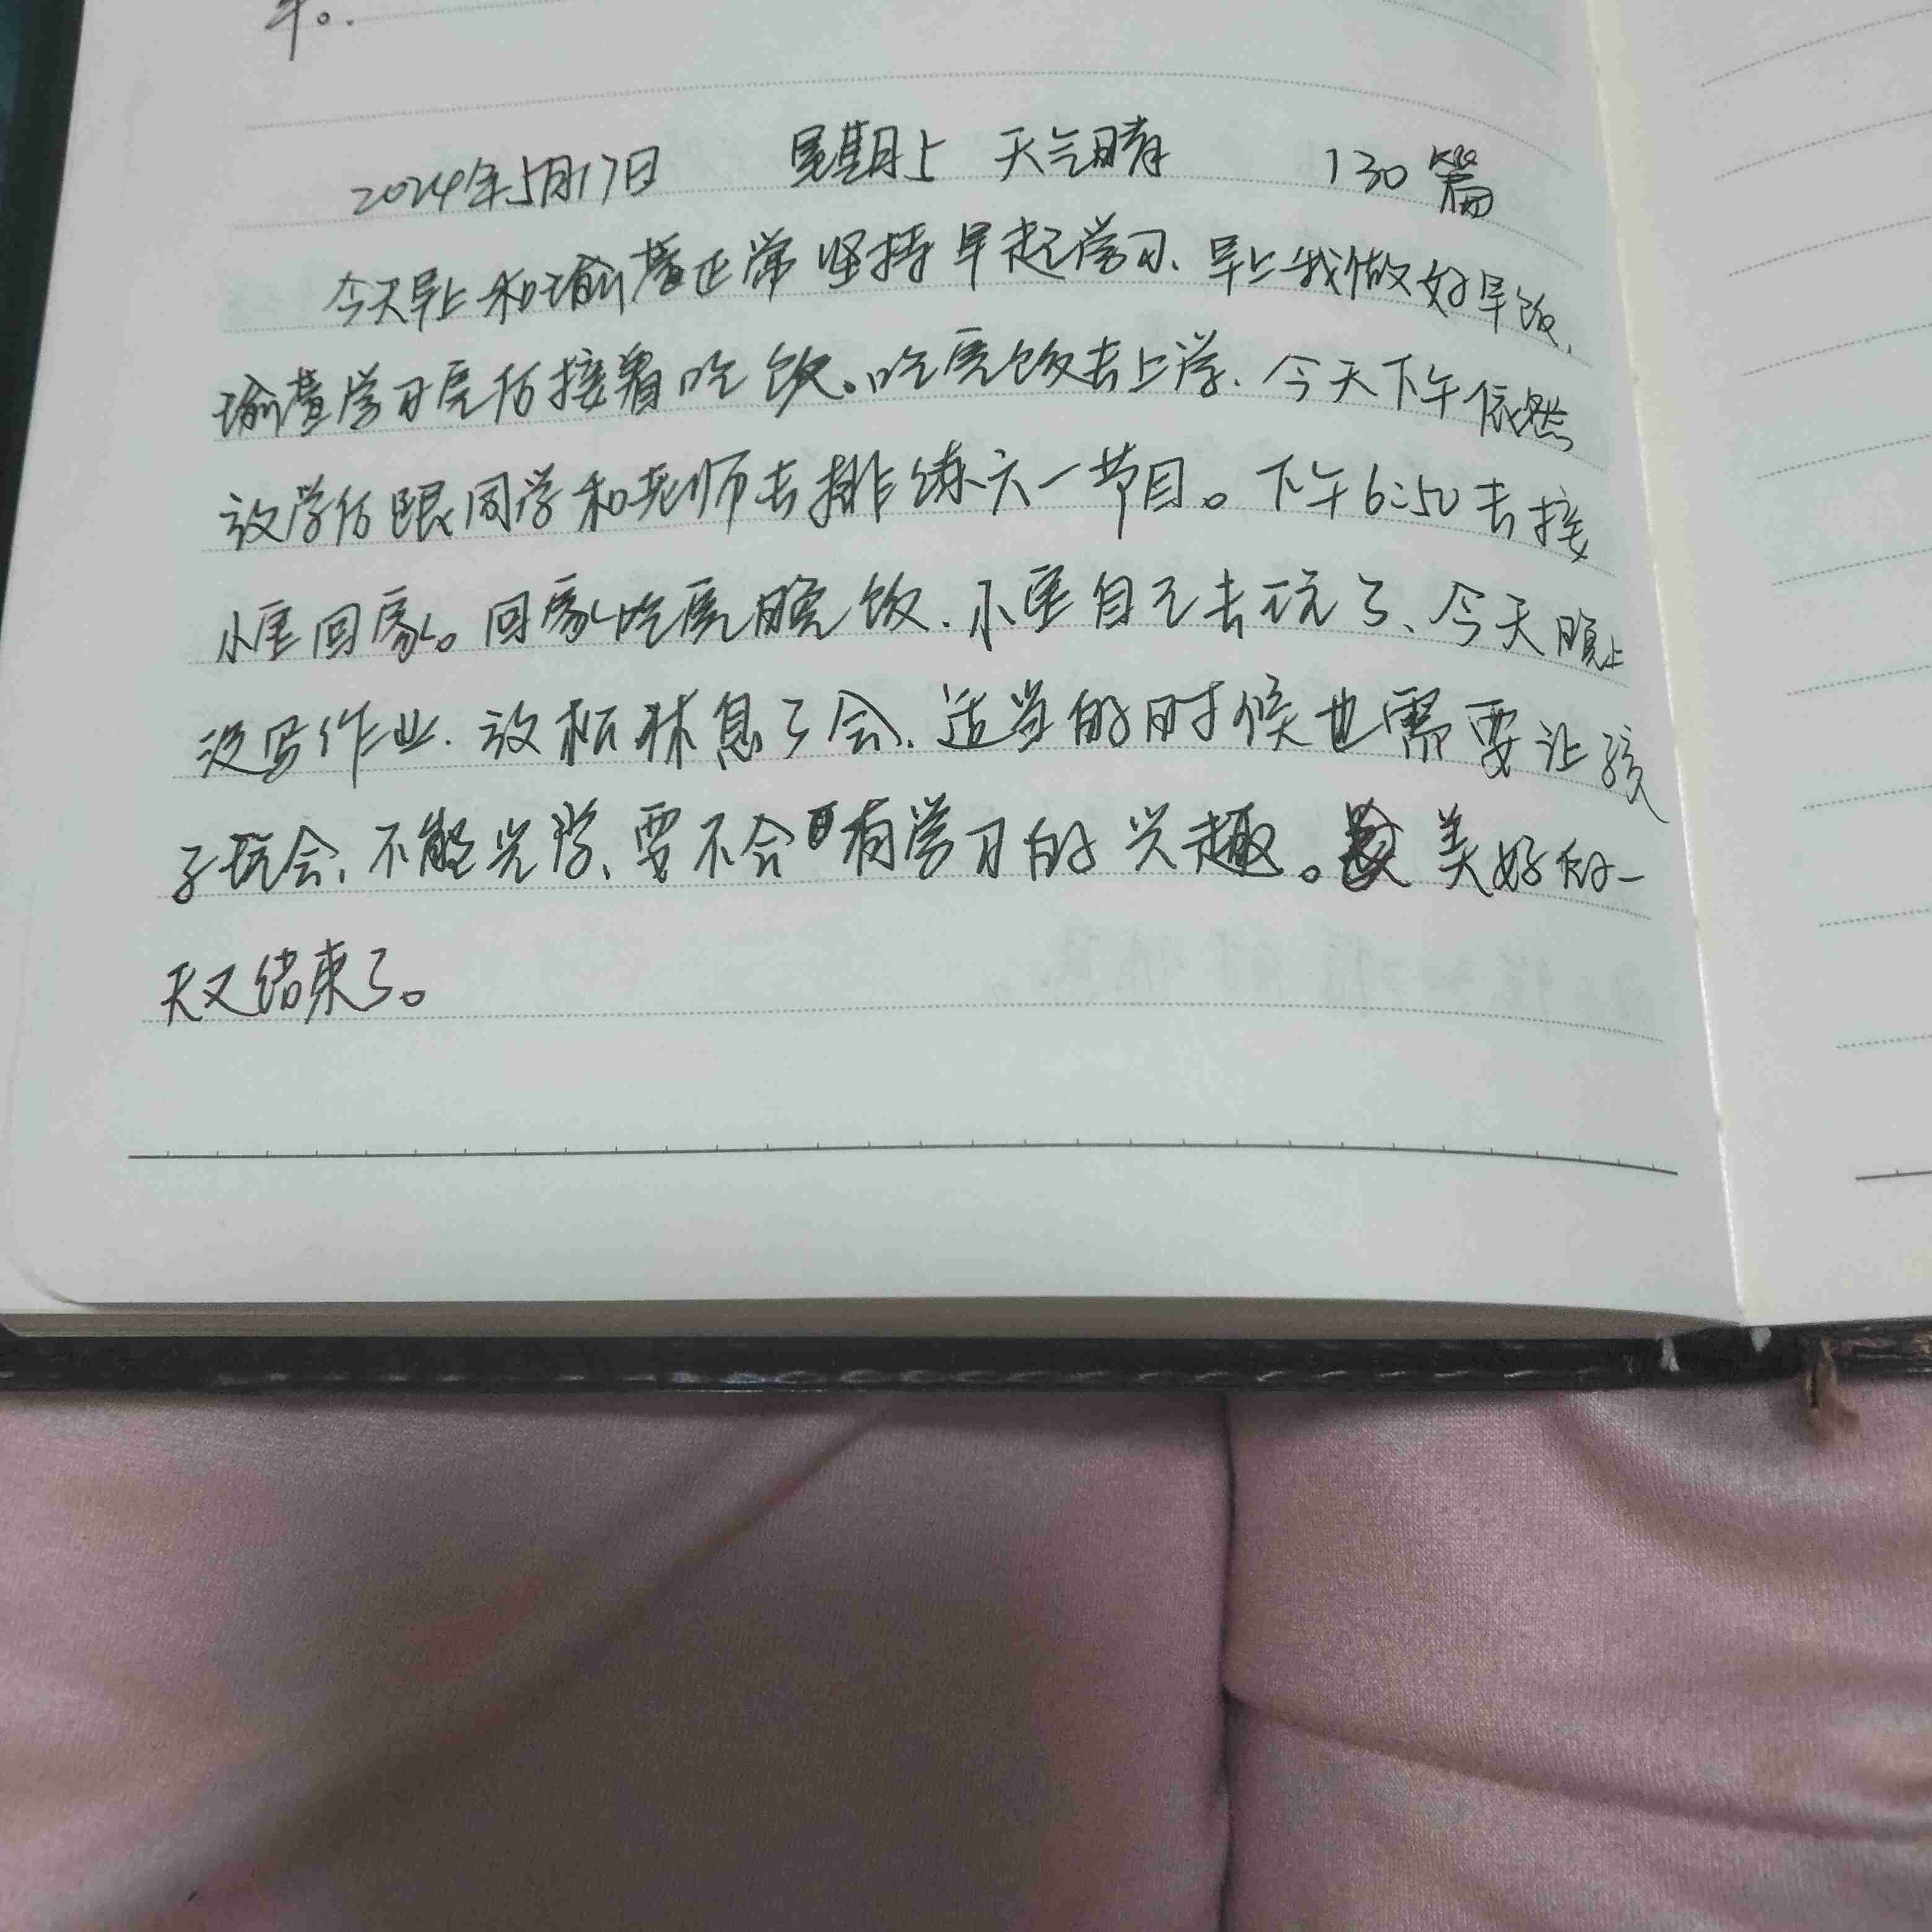 年。.
2024年5月17日 星期五 天气晴 130篇
今天早上和瑜萱正常坚持早起学习、早上我做好早饭,
瑜萱学习完后接着吃饭。吃完饭去上学、今天下午依然
放学后跟同学和老师去排练六一节目。下午6:50去接
小宝回家。回家吃完晚饭、小宝自己去玩了、今天晚上
没写作业、放松休息了会、适当的时候也需要让孩
子玩会、不能光学、要不会有学习的兴趣。美好的一
天又结束了。